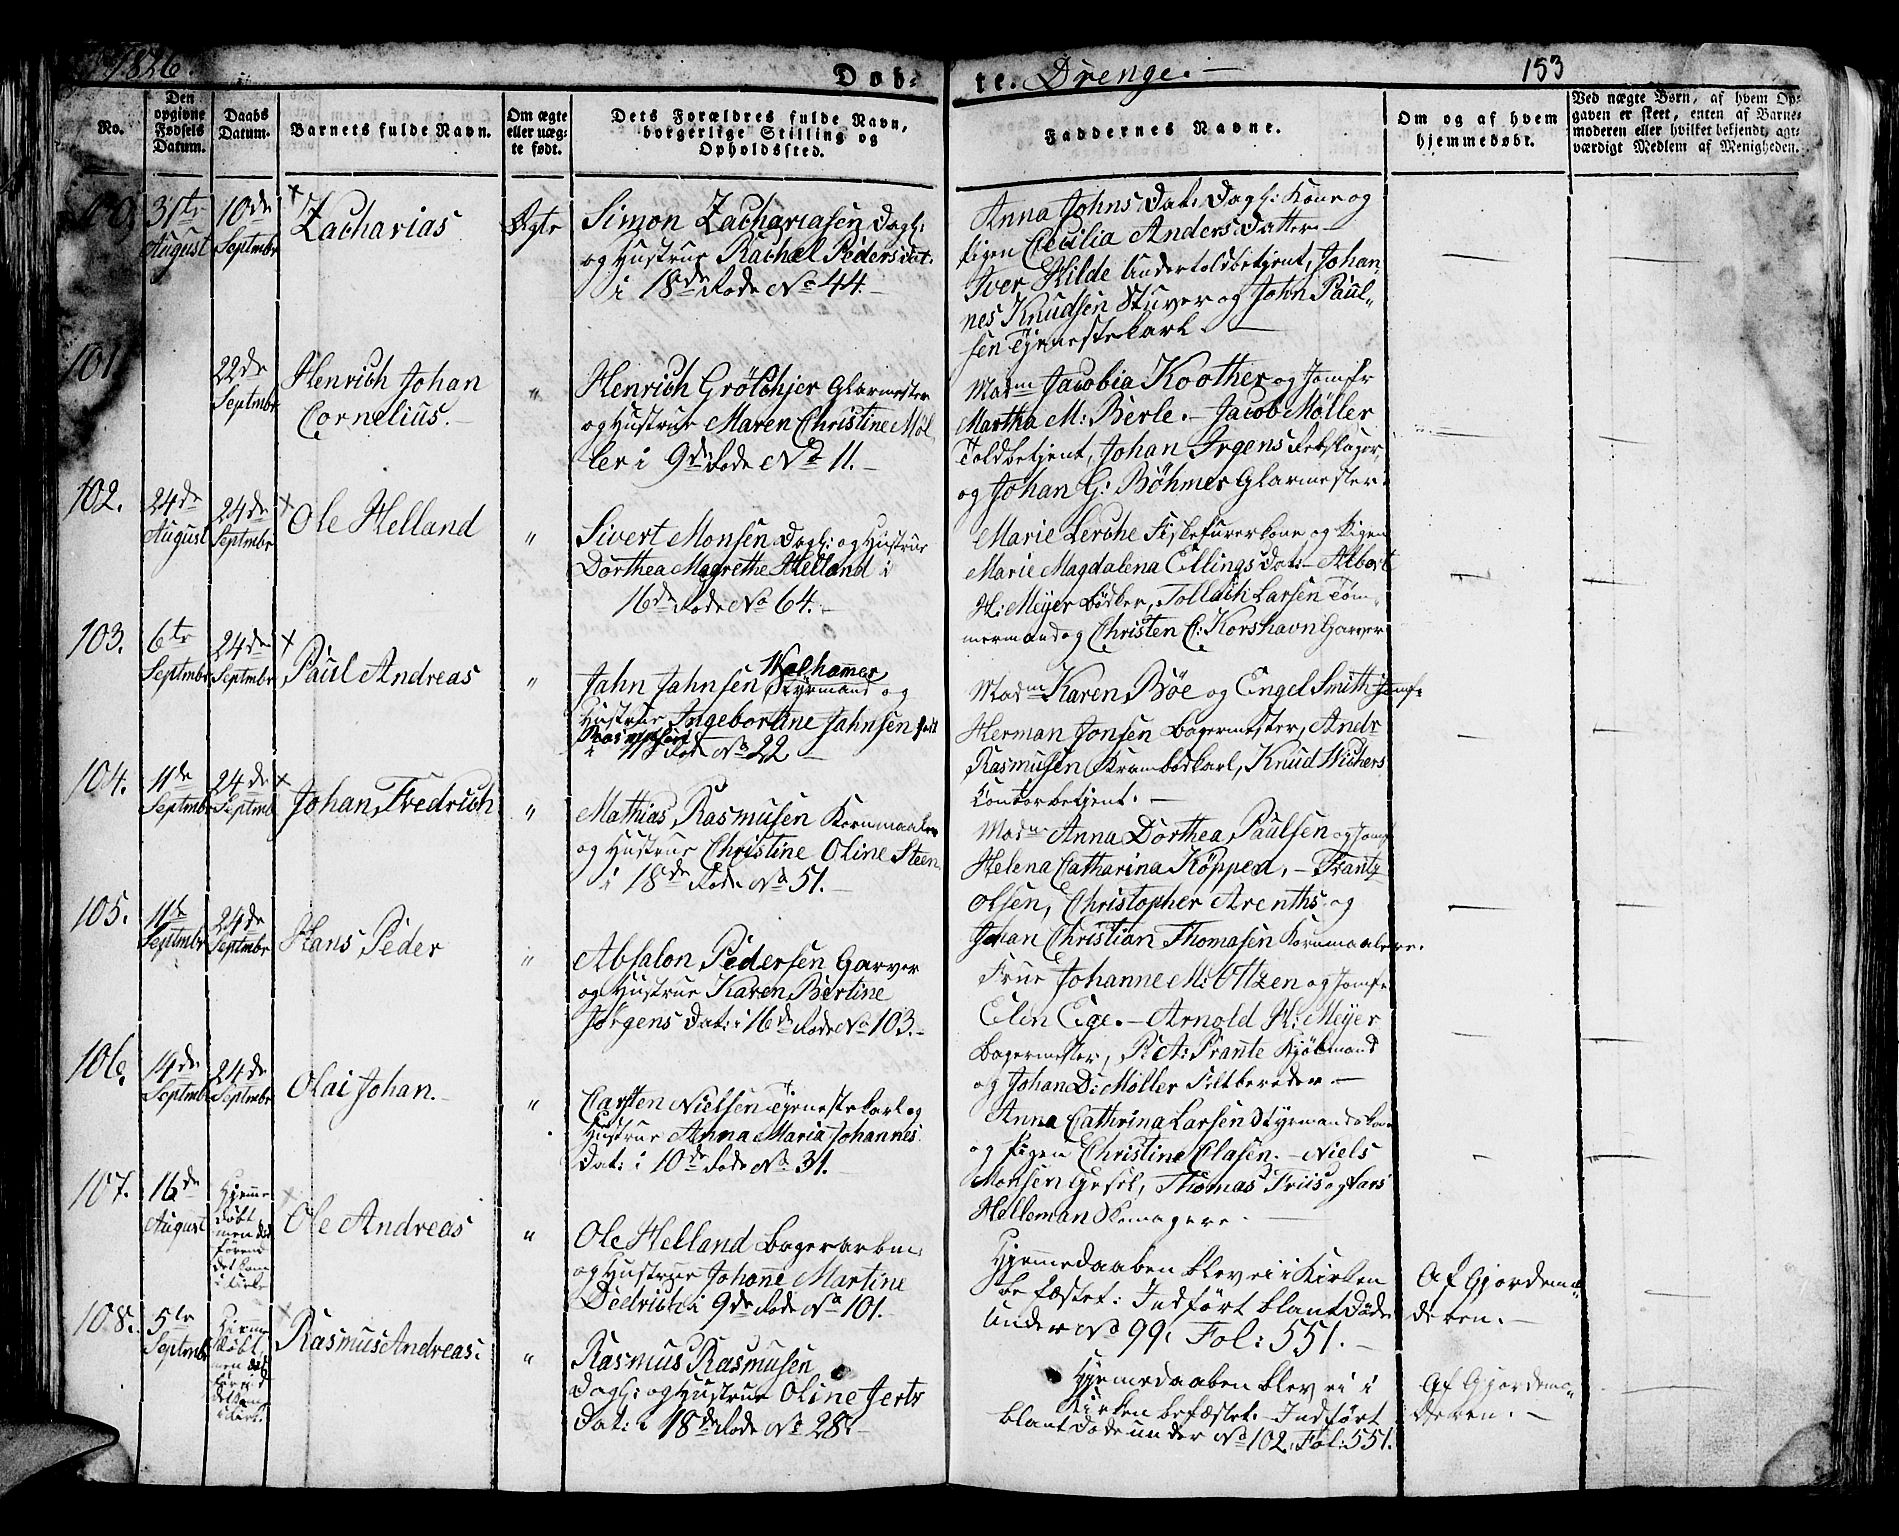 1826.
Døb-
te. Drenge.
153
No.
Den opgivne Fødsels Datum.
Daabs Datum.
Barnets fulde Navn.
Om ægte eller uæg-te født.
Dets Forældres fulde Navn, borgerlige Stilling og Opholdssted.
Faddernes Navne.
Om og af hvem hjemmedøbt.
Ved uægte Børn, af hvem Op-gaven er skeet, enten af Barne-moderen eller hvilket bekjendt, agt-værdigt Medlem af Menigheden.
100. 31te August
10de Septmbr
Zacharias
Ægte
Simon Zachariasen Dagl:
og Hustrue Rachel Peders Dat:
i 18de Rode No 44.
Anna Johns Dat: Dagl: Kone og
Pigen Cecilia Anders Datter
Iver Hilde Undertoldbetjent, Johan-
nes Knudsen Stuver og John Paul-
sen Tjenestekarl
101.
22de Septmbr
Henrich Johan
Cornelius.
"
Henrich Grölchjer Glarmester
og Hustrue Maren Christine Møl-
ler i 9de Rode No 11.
Madm Jacobia Koother og Jomfr
Martha M: Berle. Jacob Møller
Toldbetjent, Johan Irgens Rebslager,
og Johan G: Böhmer Glarmester.
102. 24de August
24de Septmbr
Ole Helland
"
Sivert Monsen Dagl: og Hustrue
Dorthea Magrethe Helland i
16de Rode No 64.
Marie Lerche Fiskeførerkone og Pigen
Marie Magdalena Ellings Dat: Albert
H: Meyer Bødker, Tollach Larsen Tøm-
mermand og Christen C: Korshavn Garver
103. 6te Septmbr
24de Septmbr
Paul Andreas
"
Walhammer
Jahn Jahnsen Styrmand og
Hustrue Ingebor Ane Jahnsen født
Rasmusen
i Rode No 22
Madm Karen Böe og Engel Smith Jomfr
Herman Jonsen Bagermester, Andr
Rasmusen Krambodkarl, Knud Wichers
Contorbetjent.
104. 11de Septmbr
24de Septmbr
Johan Fredrich
"
Mathias Rasmusen Kornmaaler
og Hustrue Christine Oline Steen
i 18de Rode No 51.
Madm Anna Dorthea Paulsen og Jomf
Helena Catharina Köppen, Frantz
Olsen, Christopher Arenths og
Johan Christian Thomasen Kornmaalere.
105. 11de Septmbr
24de Septmbr
Hans Peder
"
Absalon Pedersen Garver
og Hustrue Karen Bertine
Jørgens Dat: i 16de Rode No 103.
Frue Johanne M: Oltzen og Jomfr
Elen Ege. Arnold H: Meyer
Bagermester, P: A: Prante Kjøbmand
og Johan D: Møller Feltbereder
106. 14de Septmbr
24de Septmbr
Olai Johan.
"
Carsten Nielsen Tjenestekarl og
Hustrue Anna Maria Johannes
Dat: i 10de Rode No 31.
Anna Cathrina Larsen Styrmandskone
og Pigen Christina Clasen. Niels
Monsen Gesel, Thomas Friis og Lars
Helleman Skomagere.
107. 16de August
Hjemme
døbt
men død
førend
det kom
i Kirke
Ole Andreas
"
Ole Helland Bagerarbm:
og Hustrue Johanne Martine
Dedrich i 9de Rode No 101.
Hjemmedaaben blev ei i Kirken
befæstet. Indført blant Døde
under No 99, Fol: 551.
Af Gjordemo-
deren.
108. 5te Septmbr
Hjemme
døbt
men død
førend
det kom
i Kirk.
Rasmus Andreas.
"
Rasmus Rasmusen
Dagl: og Hustrue Oline Jerts
Dat: i 18de Rode No 28.
Hjemmedaaben blev ei i
Kirken befæstet. Indført
blant Døde under No 102, Fol: 551.
Af Gjordemo-
deren.